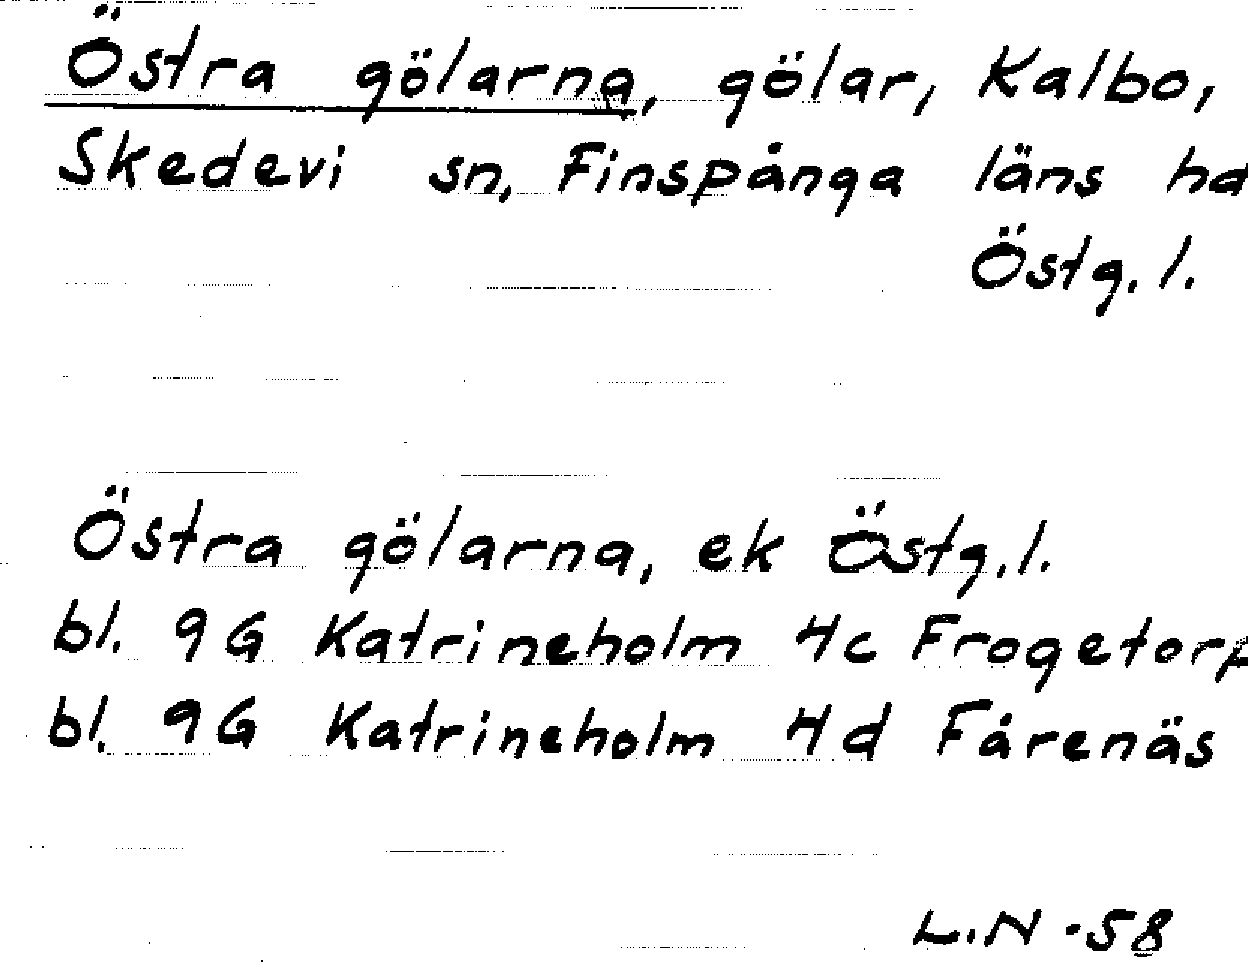 Östra gölarna, gölar, Kalbo,
Skedevi sn, Finspånga läns hd
Östg. l.
Östra gölarna, ek Östg. l.
bl. 9G Katrineholm 4c Frogetorp
bl. 9G Katrineholm 4d Fårenäs
L.N -58